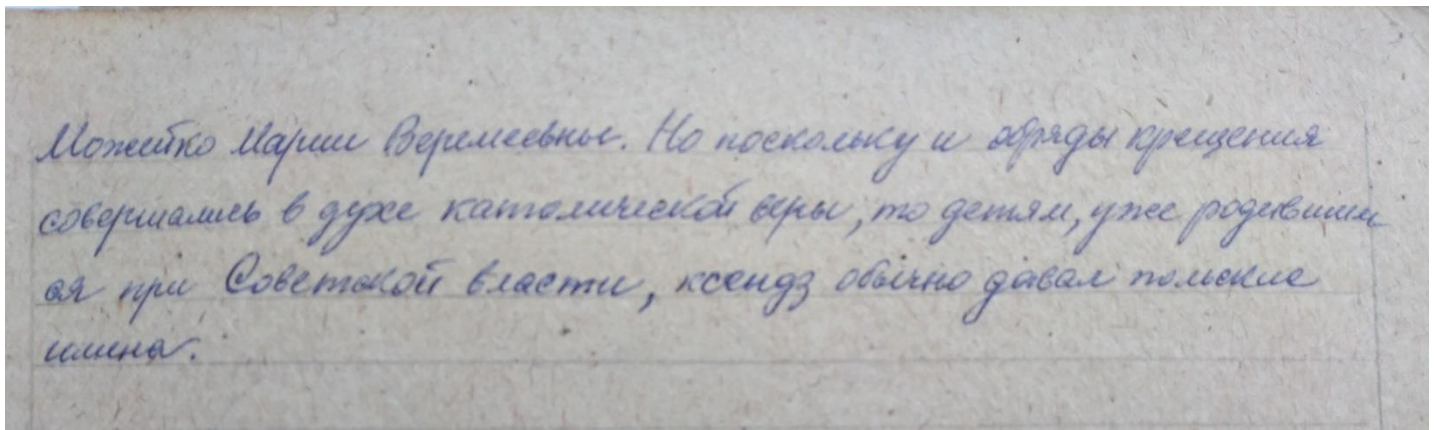 Можейко Марии Веремеевны. Но поскольку и обряды крещения
совершались в духе католической веры, то детям, уже родившим
ся при Советской власти, ксендз обычно давал польские
имена.